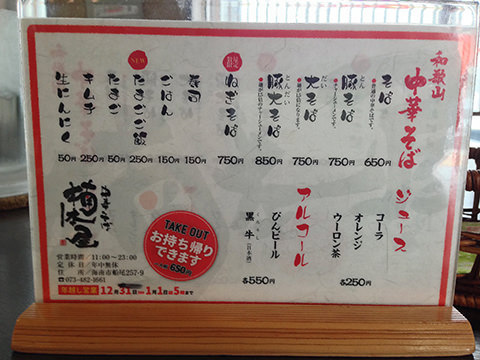 和歌山
中華そば
そば
●普通の中華そばです。
650円
とん
豚そば
750円
大そば
●麺が1.5倍になります。
750円
とんだい
豚大そば
850円
お勧め
ねぎそば
750円
寿司
150円
ごはん
150円
NEW
たまごご飯
250円
たまご
50円
キムチ
250円
生にんにく
50円
ジュース
コーラ
オレンジ
ウーロン茶
各250円
アルコール
びんビール
黒牛(日本酒)
各550円
TAKE OUT
お持ち帰り
できます
650円
中華そば
楠木屋
営業時間：11:00～23:00
定休日／年中無休
住所／海南市船尾257-9
☎073-482-1661
年越し営業 12月31日 1月1日 5時まで